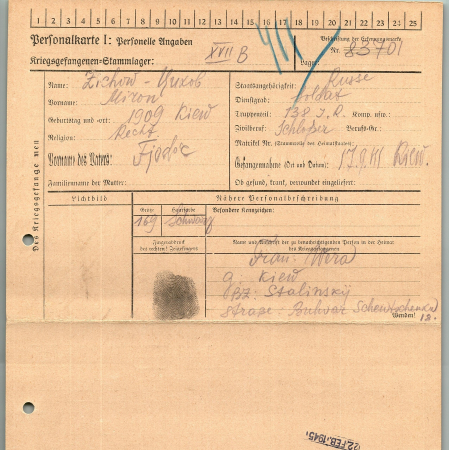 1 2 3 4 5 6 7 8 9 10 11 12 13 14 15 16 17 18 19 20 21 22 23 24 25
Personalkarte I: Personelle Angaben
Kriegsgefangenen-Stammlager: XVII B
Beschriftung der Erkennungsmarke
Nr. 83701
Lager:
Des Kriegsgefangenen
Name: Zichow-
Vorname: Miron
Geburtstag und -ort: 1909 Kiew
Religion:
Vorname des Vaters: Fjodor
Familienname der Mutter:
Staatsangehörigkeit: Russe
Dienstgrad: Soldat
Truppenteil: 138 J.R. Komp. usw.:
Zivilberuf: Schlosser Berufs-Gr.:
Matrikel Nr. (Stammrolle des Heimatstaates):
Gefangennahme (Ort und Datum): 17.9.41 Kiew.
Ob gesund, krank, verwundet eingeliefert:
Lichtbild
Nähere Personalbeschreibung
Größe Haarfarbe Besondere Kennzeichen:
169 Schwarz
Fingerabdruck
des rechten Zeigefingers
Name und Anschrift der zu benachrichtigenden Person in der Heimat
des Kriegsgefangenen
Frau: Wera
g. Kiew
Bz: Stalinskij
straße:
Wenden!
12.
22. FEB. 1945